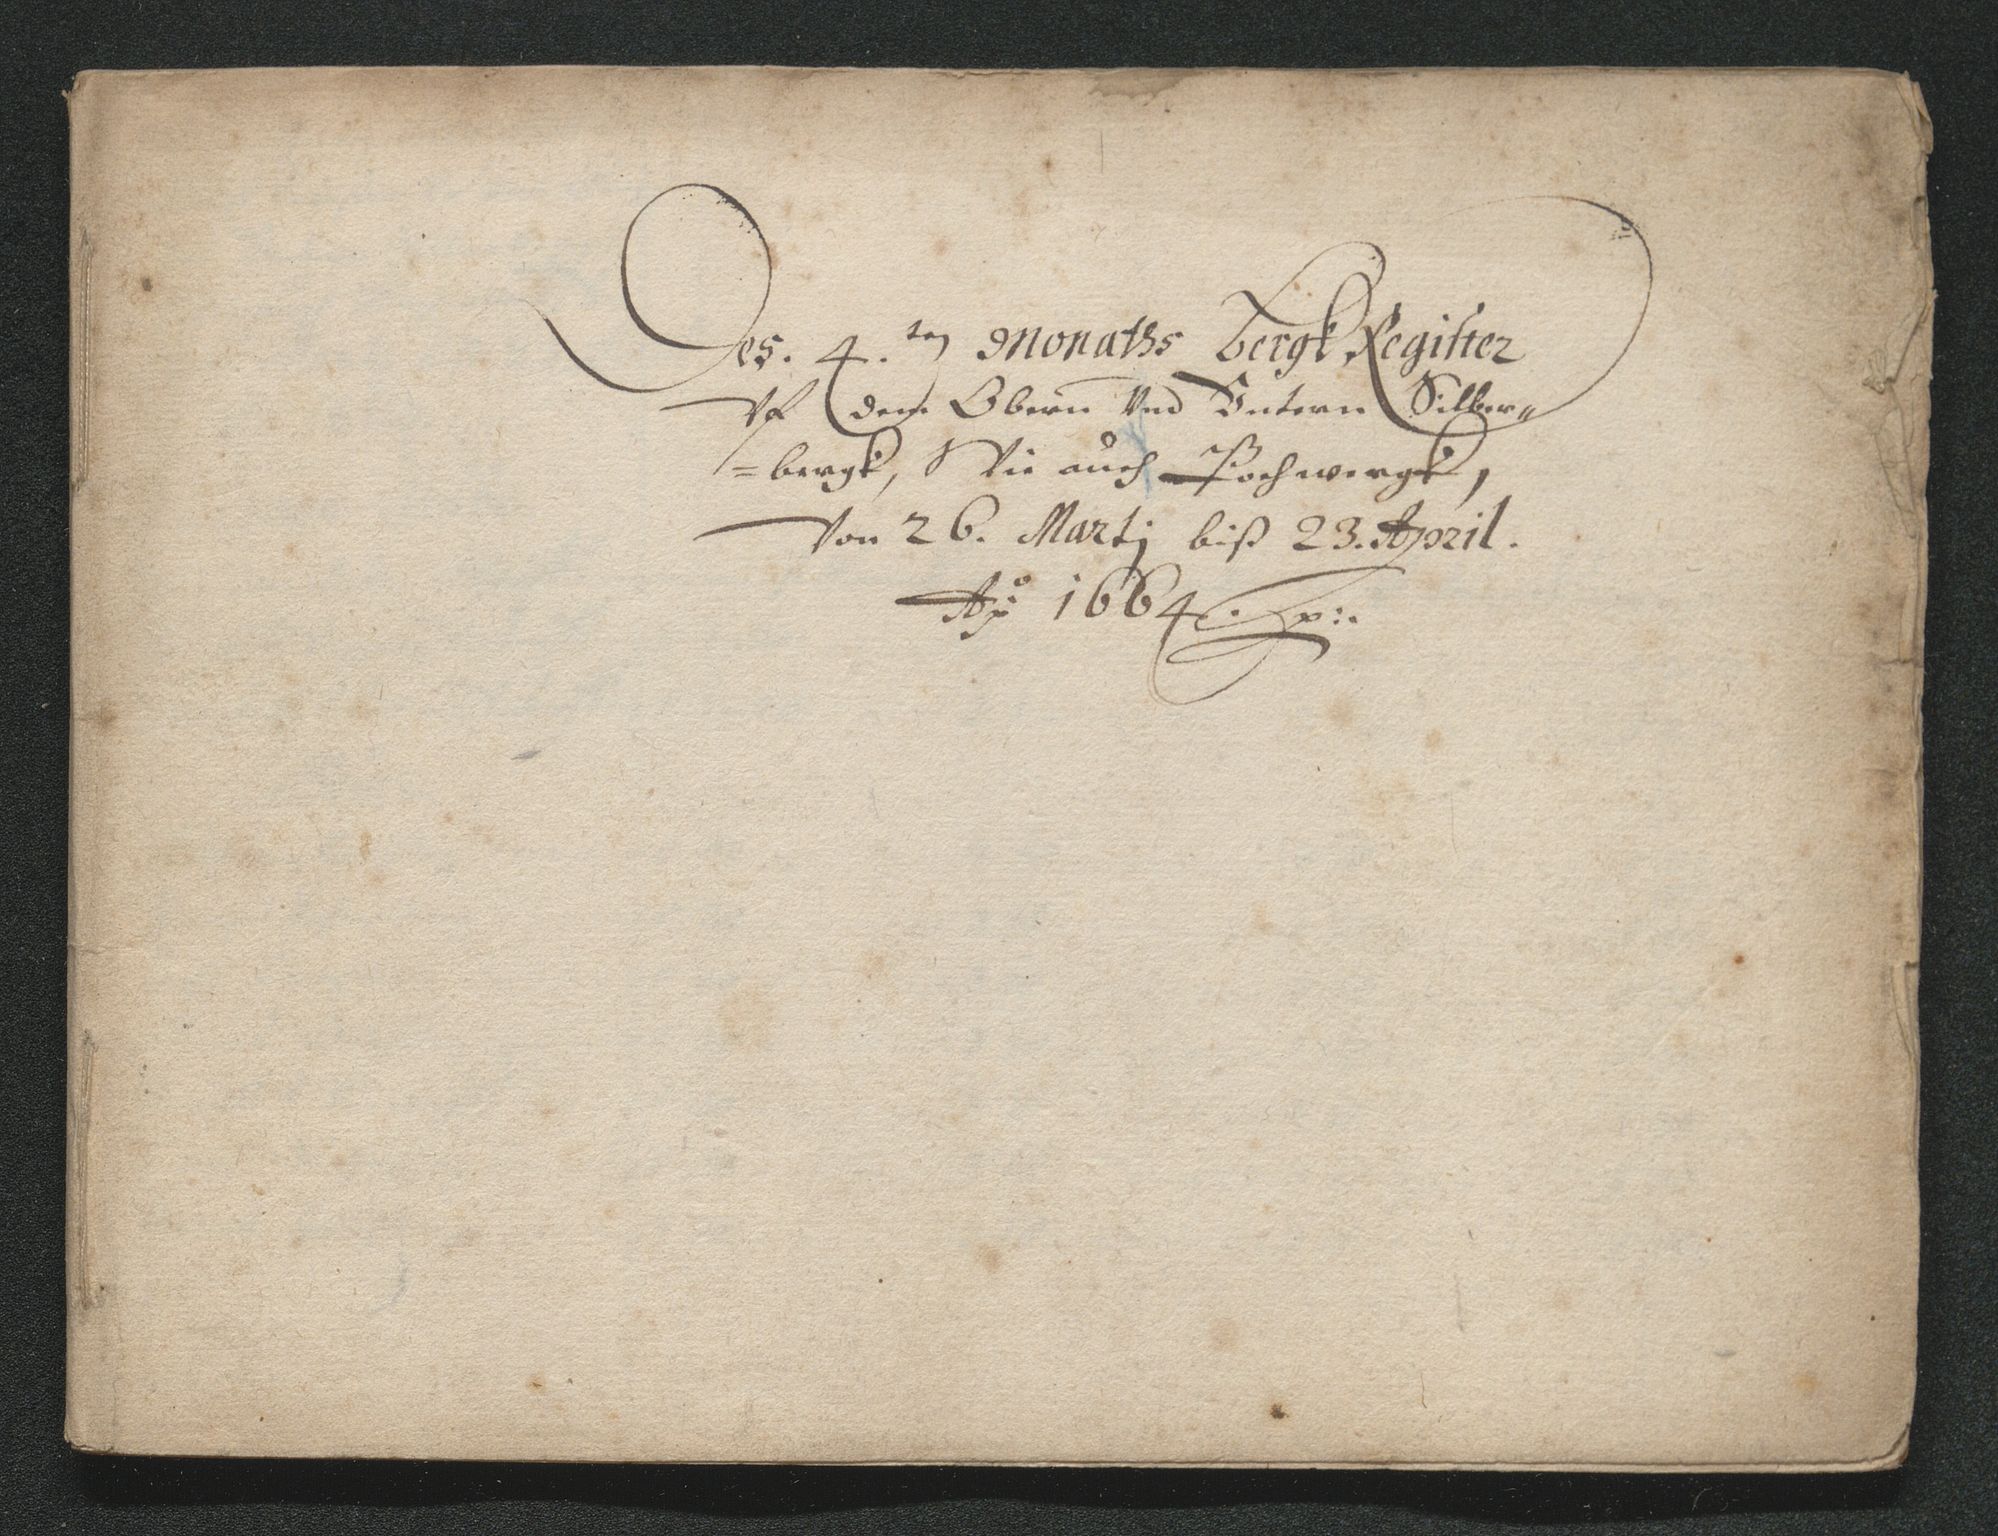 Des. 4.ten Monaths Bergk Register
Vf dem Obern Vnd Vntern Silber=
=bergk, Wie auch Pochwergk,
Von 26. Martj biß 23. April.
Aõ 1664.